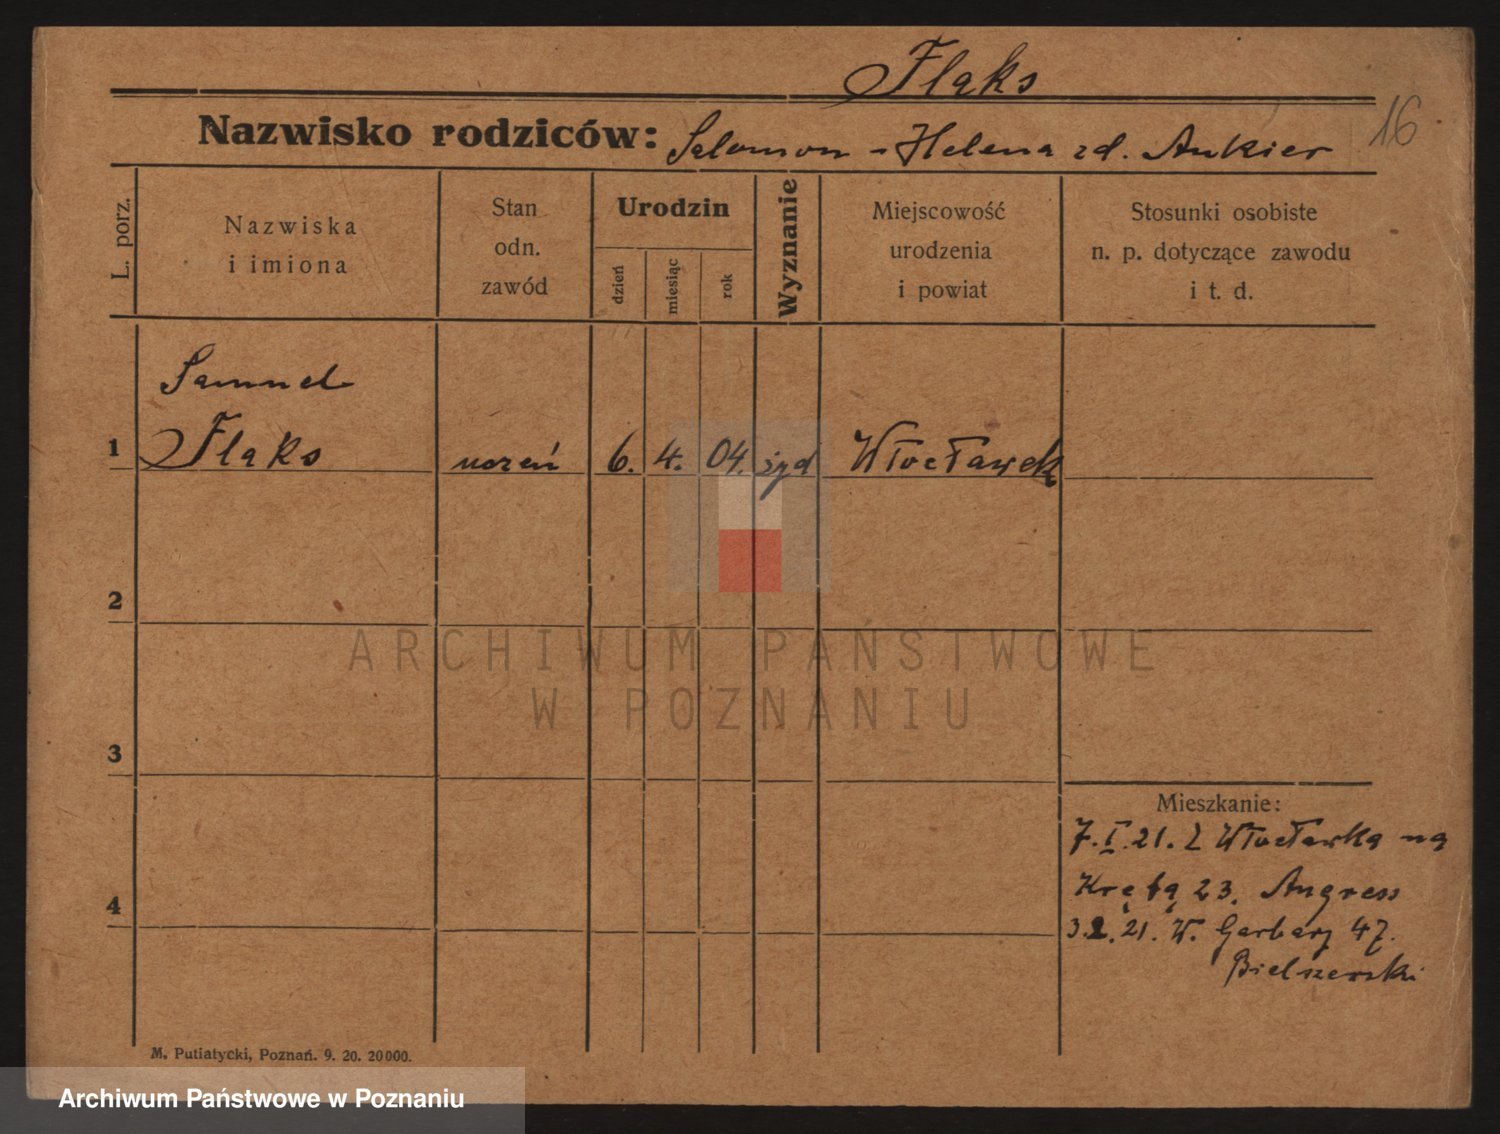 Flaks
16
Nazwisko rodziców: Salomon - Helena zd. Ankier
L. porz.
Nazwiska
i imiona
Stan
odn.
zawód
Urodzin
dzień
miesiąc
rok
Wyznanie
Miejscowość
urodzenia
i powiat
Stosunki osobiste
n. p. dotyczące zawodu
i t. d.
Samuel
1 Flaks uczeń 6. 4. 04. żyd Włocławek
2
ARCHIWUM PAŃSTWOWE
W POZNANIU
3
Mieszkanie:
7. I. 21. Z Włocławka na
4 23. Angress
3.2.21. W. Garbary 47.
M. Putiatycki, Poznań. 9. 20. 20000.
Archiwum Państwowe w Poznaniu